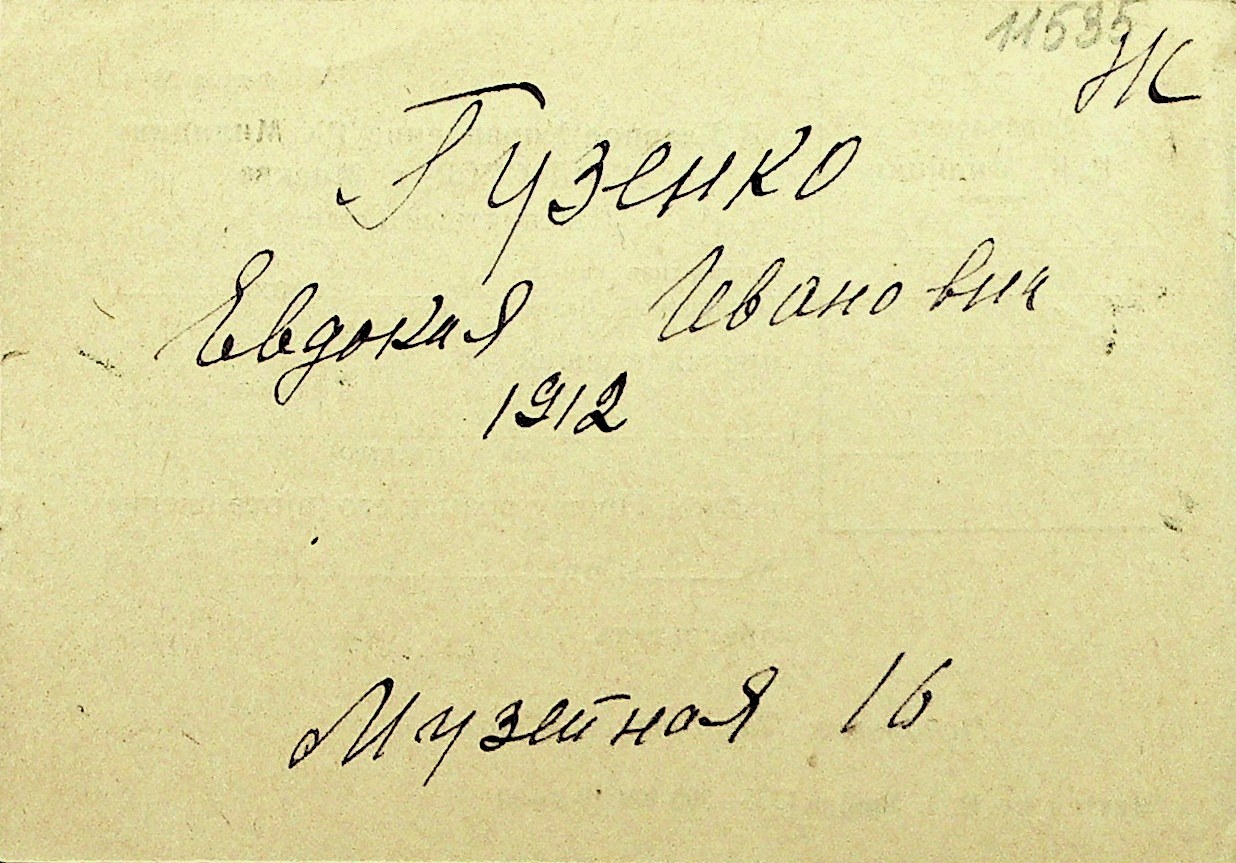 11595
Ж
Гузенко
Евдокия Ивановна
1912
Музейная 16